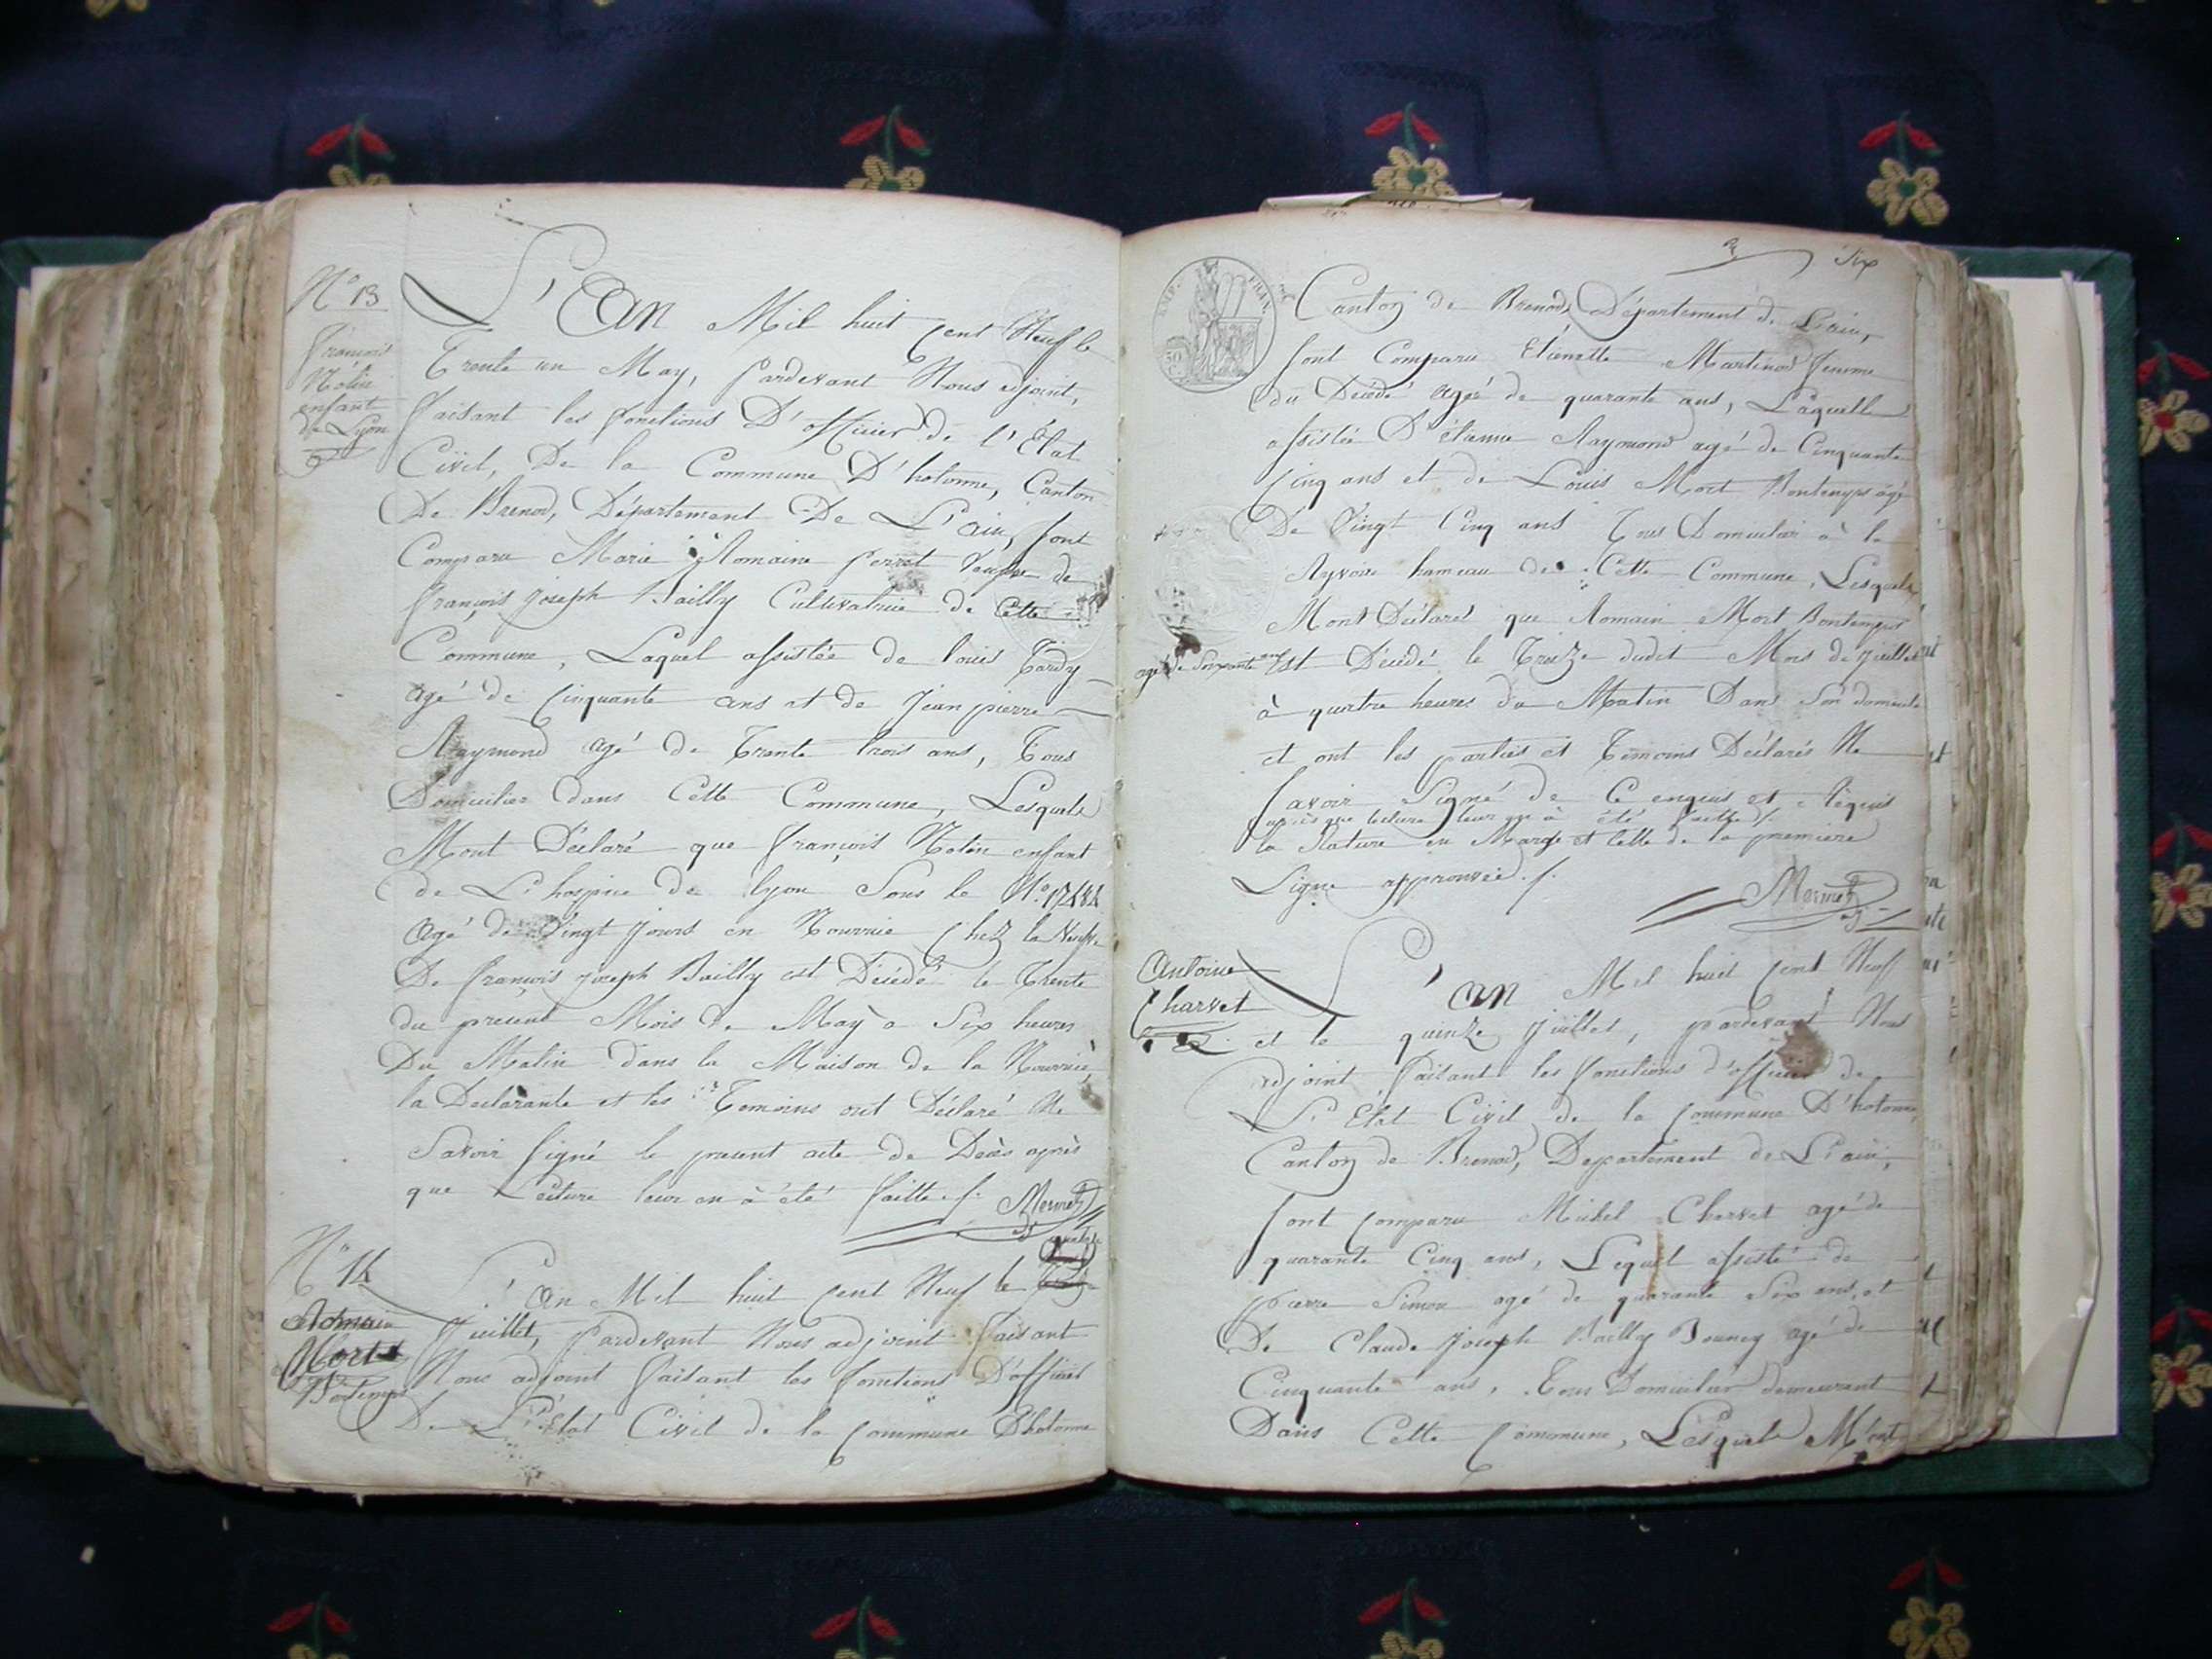 N° 13
françois
Nolin
enfant
de Lyon
L'An Mil huit Cent Neuf le
Trente un May, Pardevant Nous adjoint,
faisant les fonctions D'officier de l'Etat
Civil, De la Commune D'hotonne, Canton
De Brenod, Département De L'ain, sont
Comparu Marie Romaine perret veuve de
françois joseph Bailly Cultivatrice de Cette
Commune, Laquel assistée de louis Tardy
agé de Cinquante ans et de Jean pierre
Raymond agé de Trente trois ans, Tous
Domicilier dans Cette Commune, Lesquels
Mont Déclaré que françois Nolin enfant
de L'hospice de lyon Sous le N°
agé de Vingt Jours en Nourrice Chez la Veuve
De françois joseph Bailly est Décédé le Trente
du present Mois de May a Six heures
Du Matin dans la Maison de la Nourrice,
la Declarante et les Temoins ont Déclaré Ne
Savoir signé le present acte de Deces après
que Lecture leur en à été faitte./. Mermet
N° 14
Romain
Mort
Bontemps
quatorze
L'an Mil huit Cent Neuf le
Juillet, Pardevant Nous adjoint faisant
Nous adjoint faisant les fonctions D'officier
De L'état Civil de la Commune D'hotonne
Six
EMP. FRAN.
50 C.
Canton de Brenod, Département de L'ain,
sont Comparu Etienette Martinod femme
du Décédé agée de quarante ans, Laquelle
assistée D'étienne Raymond agé de Cinquante
Cinq ans et de Louis Mort Bontemps agé
De Vingt Cinq ans Tous Domicilier à la
Ryvoire hameau de Cette Commune, Lesquels
Mont Déclaré que Romain Mort Bontemps
agé de Soixante ans
est Décédé le Treize dudit Mois de juillet
à quatre heures du Matin Dans Son domicile
et ont les parties et Témoins Déclarés Ne
savoir Signé de Ce enquis et Requis
après que lecture leur en à été faitte
la Rature en Marge et Celle de la premiere
Ligne approuvée ./.
Mermet
Antoine
Charvet
L'an Mil huit Cent Neuf
et le quinze juillet, pardevant Nous
adjoint faisant les fonctions d'officier de
L'Etat Civil de la Commune D'hotonne,
Canton de Brenod, Departement de L'ain,
sont Comparu Michel Charvet agé de
quarante Cinq ans, Lequel assisté de
pierre Simon agé de quarante Six ans, et
De Claude joseph Bailly Bouncy agé de
Cinquante ans, Tous Domicilier demeurant
Dans Cette Commune, Lesquels M'ont